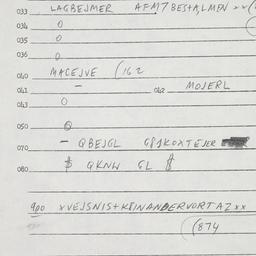 033 LAGBEJMER AFM,7 BESTALMEN xx(
034 0
035 0
036 0
040 MACEJVE (162
041 - 042 MOJERL
043 0
050 0
070 - QBEJGL
080 $ QKNW GL $
900 xVEJSNIS+KRINANDERVORTAZxx
(874